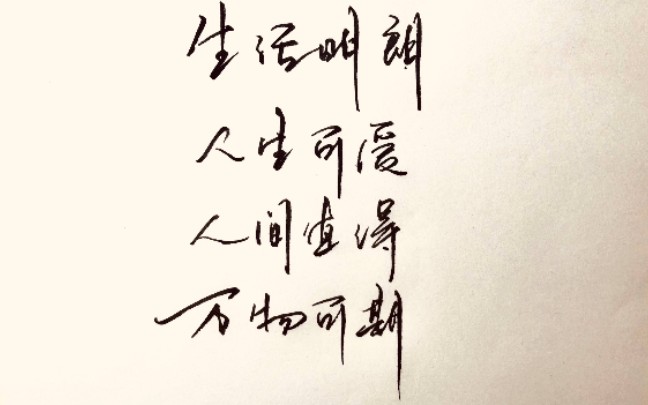 生活明朗
人生可爱
人间值得
万物可期